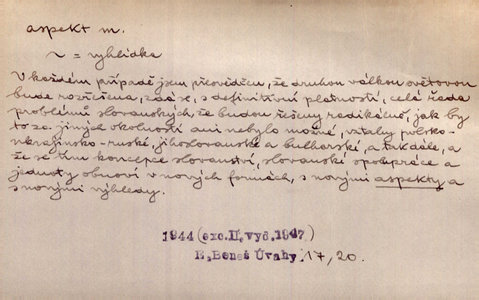 aspekt m.
~ = vyhlídka
V každém případě jsem přesvědčen, že druhou válkou světovou
bude rozřešena, zdá se, s definitivní platností, celá řada
problémů slovanských, že budou řešeny radikálně, jak by
to za jiných okolností ani nebylo možné, vztahy polsko-
ukrajinsko-ruské, jihoslovanské a bulharské, a tak dále, a
že se tím koncepce slovanství, slovanské spolupráce a
jednoty obnoví v nových formách, s novými aspekty a
s novými výhledy.
1944 (exc. II. vyd. 1947)
E. Beneš Úvahy 17, 20.